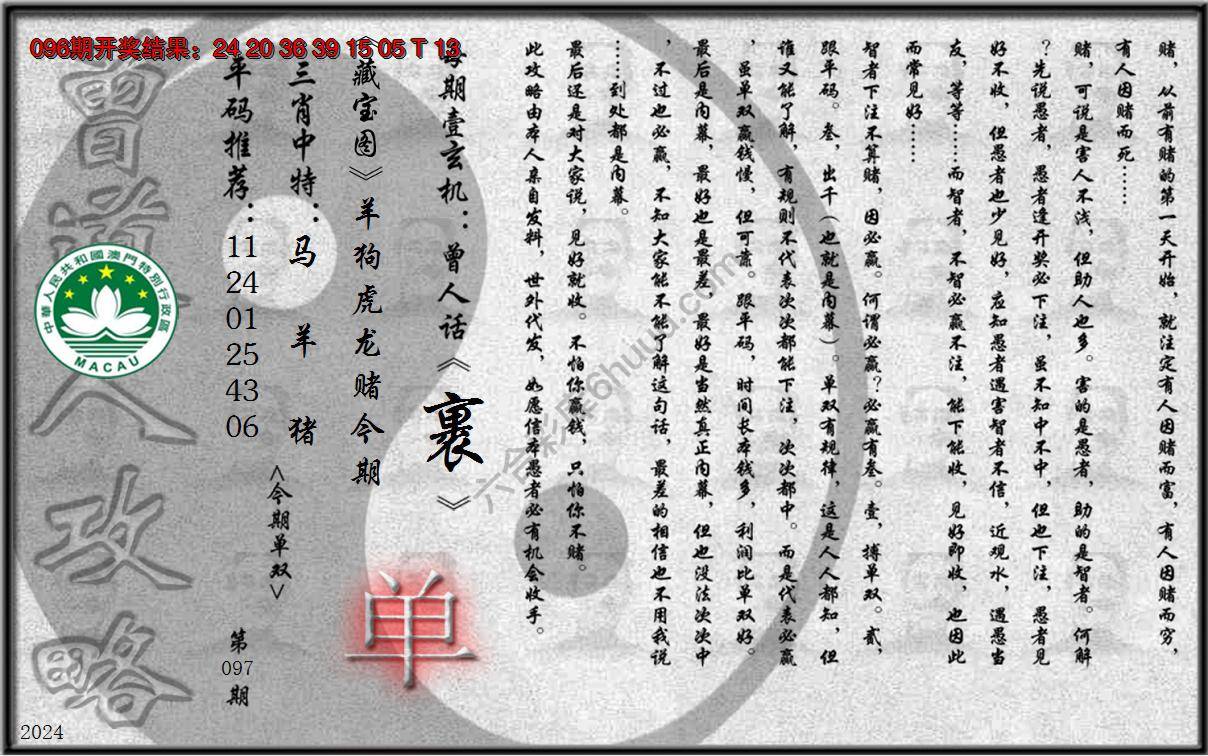 096期开奖结果：24 20 36 39 15 05 T 13
赌，从前有赌的第一天开始，就注定有人因赌而富，有人因赌而穷，
有人因赌而死……
赌，可说是害人不浅，但助人也多。害的是愚者，助的是智者。何解
？先说愚者，愚者逢开奖必下注，虽不知中不中，但也下注，愚者见
好不收，但愚者也少见好，应知愚者遇害智者不信，近观水，遇愚当
友，等等……而智者，不智必赢不注，能下能收，见好即收，也因此
而常见好……
智者下注不算赌，因必赢。何谓必赢？必赢有叁。壹，搏单双。贰，
跟平码。叁，出千（也就是内幕）。单双有规律，这是人人都知，但
谁又能了解，有规则不代表次次都能下注，次次都中。而是代表必赢
，虽单双赢钱慢，但可靠。跟平码，时间长本钱多，利润比单双好。
最后是内幕，最好也是最差，最好是当然真正内幕，但也没法次次中
，不过也必赢，不知大家能不能了解这句话，最差的相信也不用我说
……到处都是内幕。
最后还是对大家说，见好就收。不怕你赢钱，只怕你不赌。
此攻略由本人亲自发料，世外代发，如愿信本愚者必有机会收手。
每期壹玄机：曾人话《裹》
《藏宝图》羊狗虎龙赌今期
单
三肖中特：马 羊 猪
<今期单双>
平码推荐：11 24 01 25 43 06
第097期
曾道人攻略
中華人民共和國澳門特別行政區
MACAU
六合彩库6huuu.com
2024